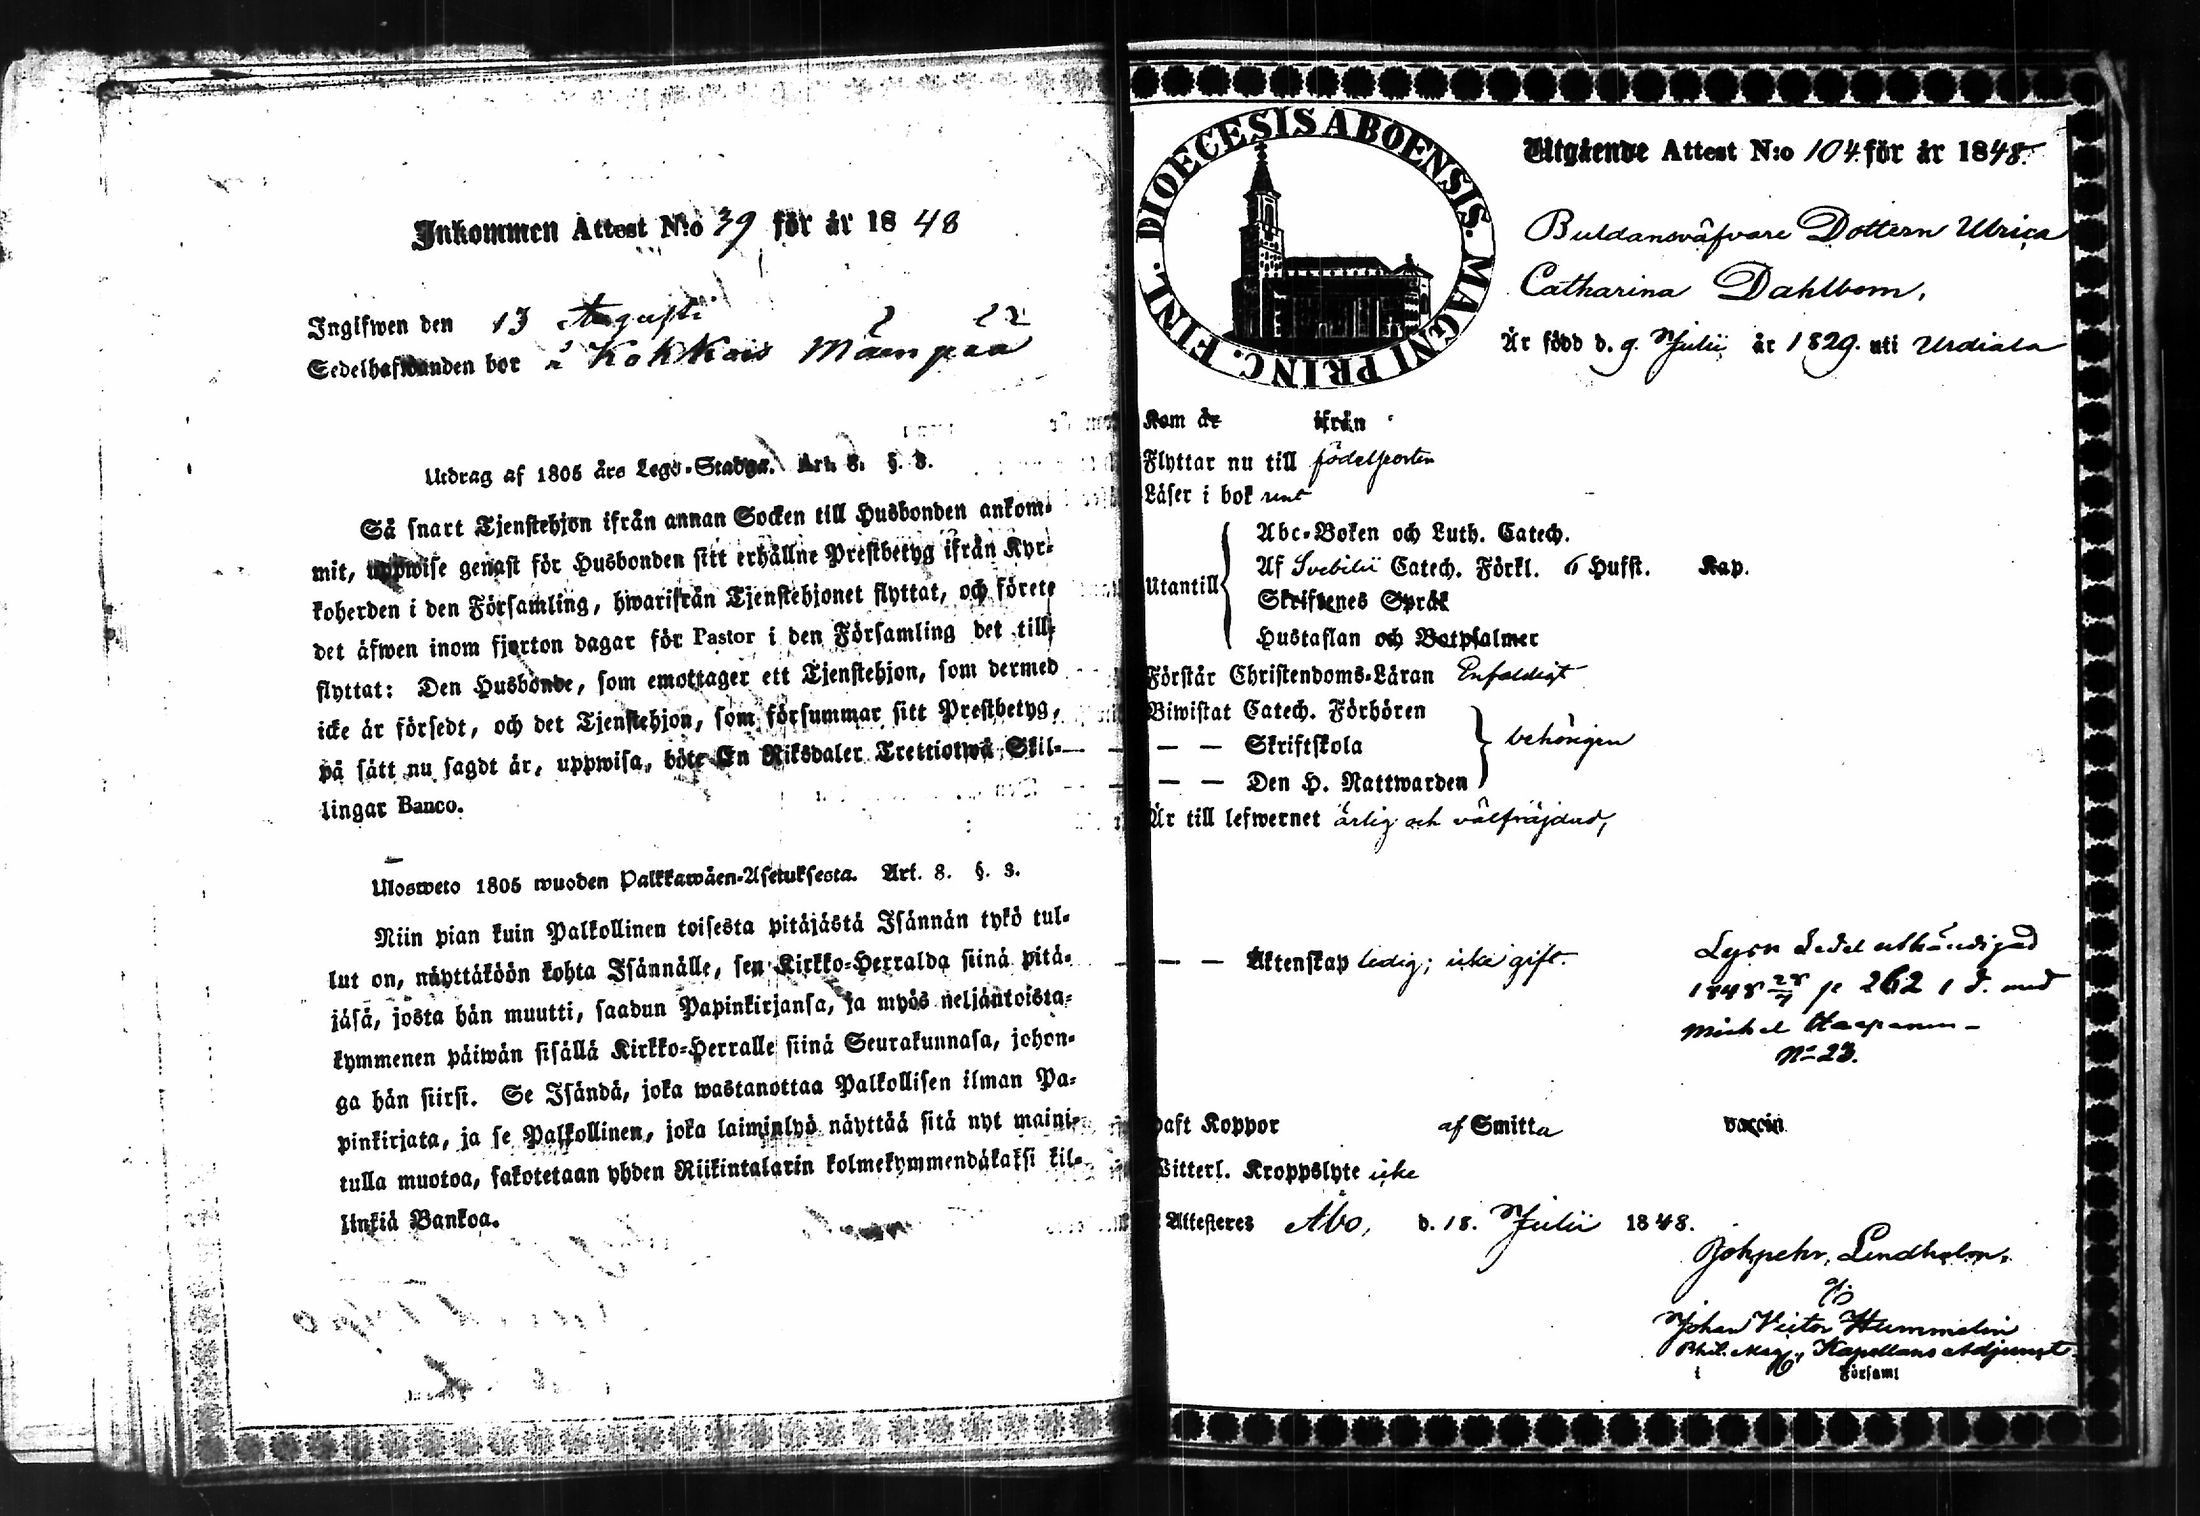 Inkommen Attest N:o 39 för år 1848
Inglfwen den 13 Augusti
Sedelhafwanden bor å Kokkois Mäenpää
Utdrag af 1805 års Lego-Stadga. Art. 8. §. 3.
Så snart Tjenstehjon ifrån annan Socken till Husbonden ankom-
mit, uppwise genast för Husbonden sitt erhållne Prestbetyg ifrån Kyr-
koherden i den Församling, hwarifrån Tjenstehjonet flyttat, och förete
det äfwen inom fjorton dagar för Pastor i den Församling det till-
flyttat: Den Husbonde, som emottager ett Tjenstehjon, som dermed
icke är försedt, och det Tjenstehjon, som försummar sitt Prestbetyg,
på sätt nu sagdt är, uppwisa, böte En Riksdaler Trettiotwå Skil-
lingar Banco.
Ulosweto 1805 wuoden Palkkawäen-Asetuksesta. Art. 8. §. 3.
Niin pian kuin Palkollinen toisesta pitäjästä Isännän tykö tul-
lut on, näyttäköön kohta Isännälle, sen Kirkko-Herralda siinä pitä-
jäsä, josta hän muutti, saadun Papinkirjansa, ja myös neljäntoista-
kymmenen päiwän sisällä Kirkko-Herralle siinä Seurakunnasa, johon-
ga hän siirsi. Se Isändä, joka wastanottaa Palkollisen ilman Pa-
pinkirjata, ja se Palkollinen, joka laiminlyö näyttää sitä nyt maini-
tulla muotoa, sakotetaan yhden Riikintalarin kolmekymmendäkaksi kil-
linkiä Bankoa.
DIOECESIS ABOENSIS. MAGNI PRINC. FINL.
Utgående Attest N:o 104 för år 1848.
Buldansväfvare Dottern Ulrica
Catharina Dahlbom,
Är född d. 9. Julii år 1829. uti Urdiala
Kom år ifrån
Flyttar nu till födelseorten
Läser i bok rent
Utantill
Abc-Boken och Luth. Catech.
Af Svebilii Catech. Förkl. 6 Hufst. Kap.
Skriftenes Språk
Hustaflan och Botpsalmer
Förstår Christendoms-Läran Enfaldigt
Biwistat Catech. Förhören
— — Skriftskola behörigen
— — Den H. Nattwarden
Är till lefwernet ärlig och välfräjdad,
— — Äktenskap ledig; icke gift.
Lysn Sedel uthändigad
1848 28/7 p 262 1 d. med
Michel Haapanen
No 23.
Haft Koppor af Smitta vaccin
Witterl. Kroppslyte icke
Attesteres Åbo, d. 18. Julii 1848.
Joh. Pehr. Lindholm.
Johan Victor Hummelin
Phil. Mag., Kapellans Adjunct
i Församl